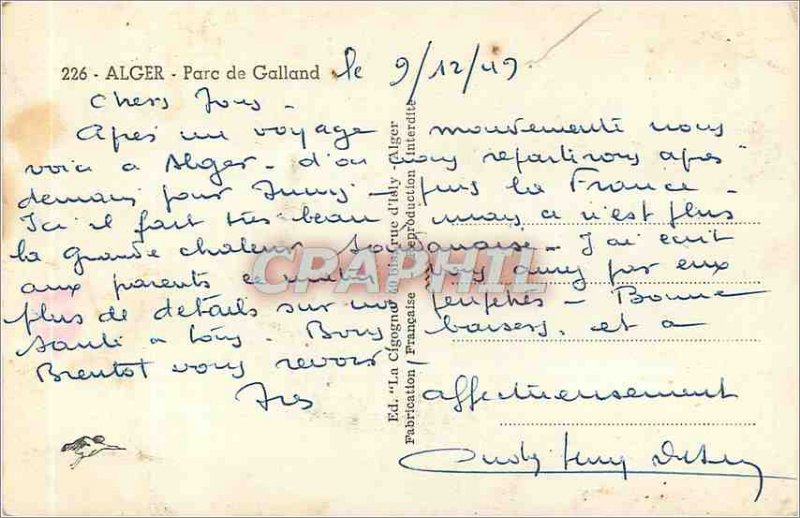 226 - ALGER - Parc de Galland le 9/12/49
Chers Tous -
Après un voyage mouvementé nous
voici a Alger - d'ou nous repartirons après
demain pour Tunis - puis la France -
Ici il fait très beau mais ce n'est plus
la grande chaleur Soudanaise - J'ai écrit
aux parents ce matin vous aurez par eux
plus de détails sur nos - Bonne
santé a tous. Bons baisers, et a
Bientot vous revoir
affectueusement
Ed. "La Cigogne" 40 bis, rue d'Isly - Alger
Fabrication Française - Reproduction interdite
CPAPHIL